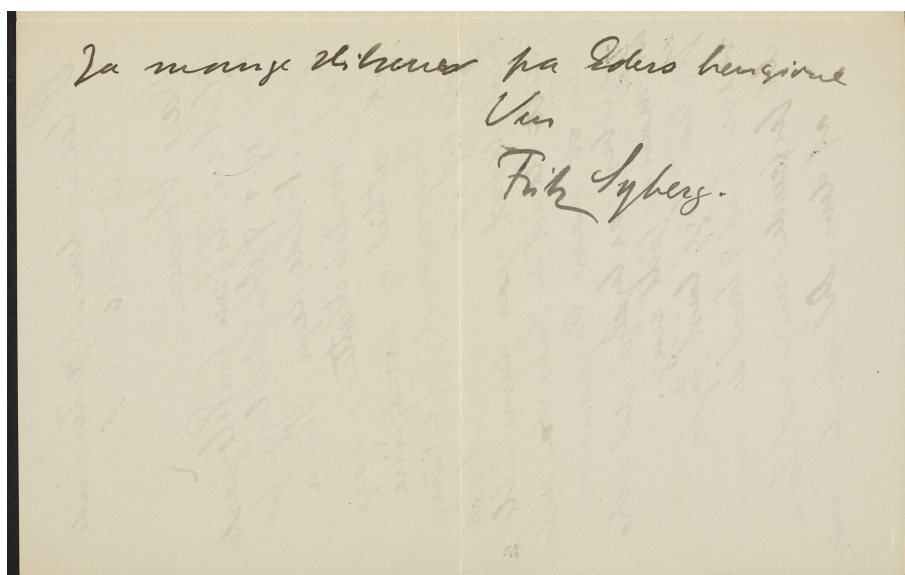 Ja mange Hilsener fra Eders hengivne
Ven
Fritz Syberg.